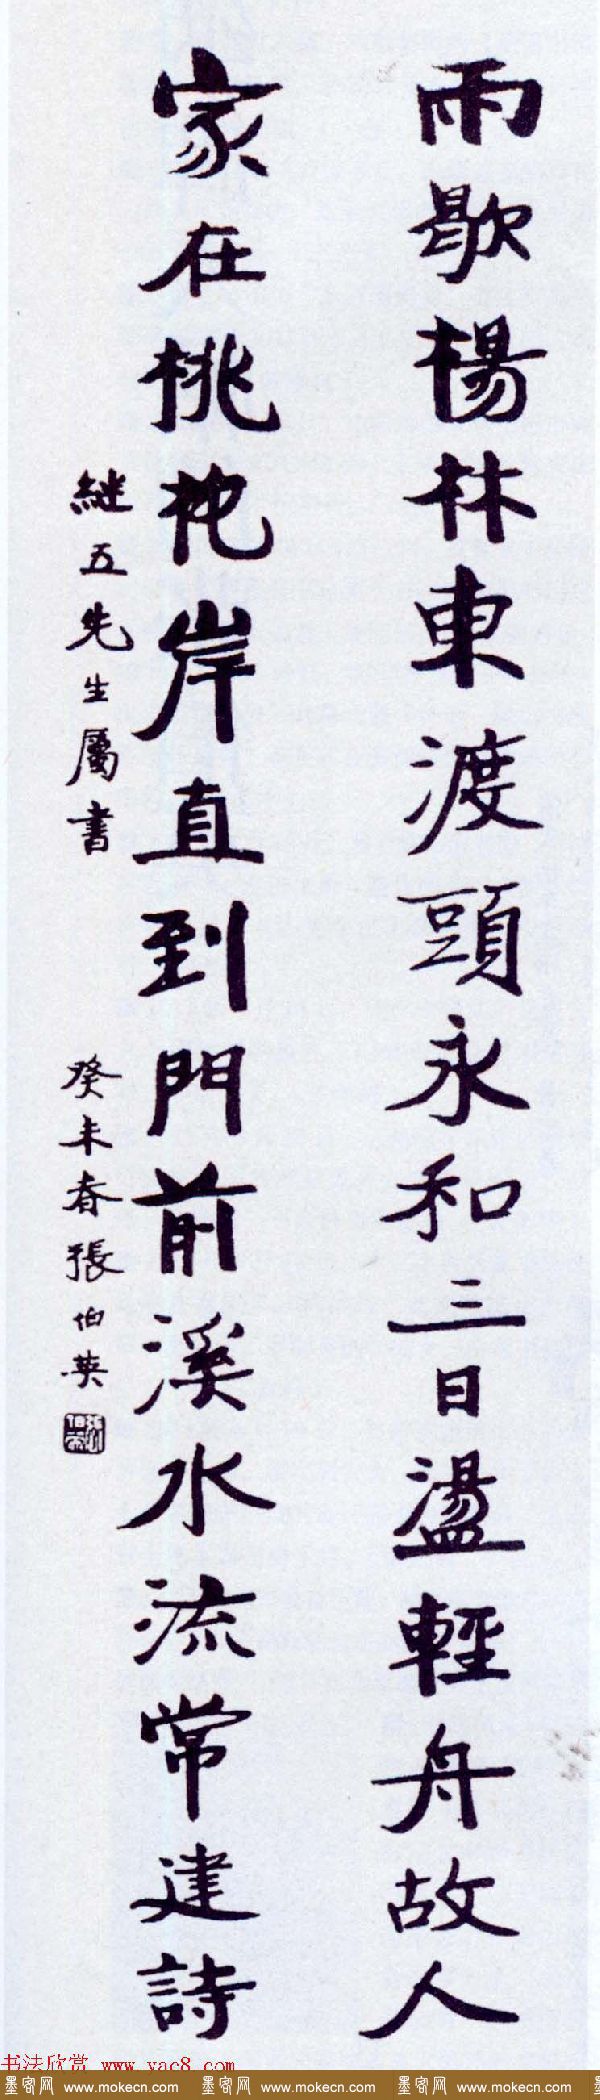 雨歇楊林東渡頭永和三日盪輕舟故人
家在桃花岸直到門前溪水流常建詩
継五先生屬書 癸未春張伯英
书法欣赏 www.yac8.com
墨客网 www.mokecn.com 墨客网 www.mokecn.com 墨客网 www.mokecn.com